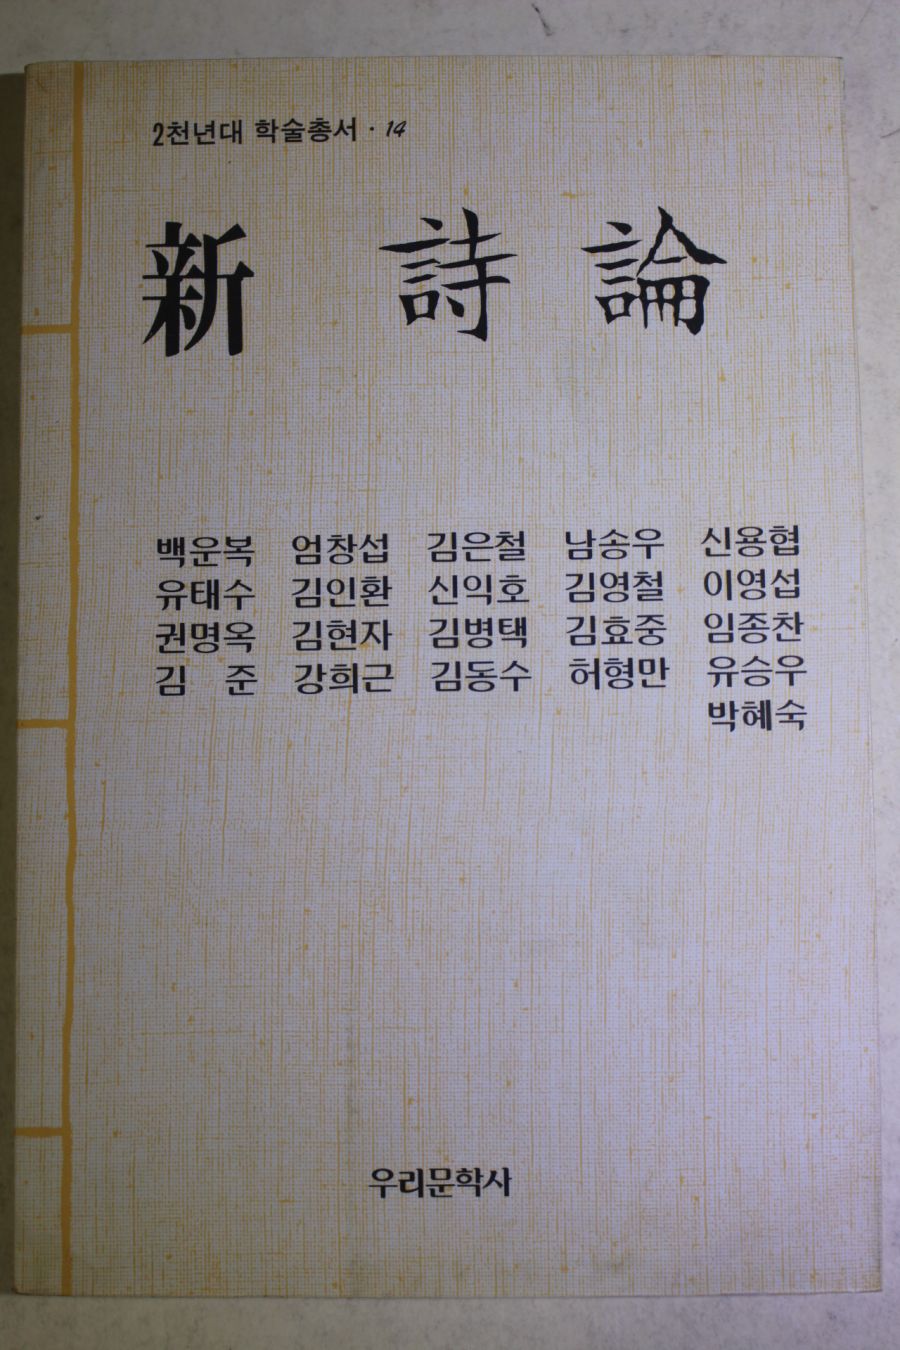 2천년대 학술총서 · 14
新 詩 論
백운복 엄창섭 김은철 남송우 신용협
유태수 김인환 신익호 김영철 이영섭
권명옥 김현자 김병택 김효중 임종찬
김 준 강희근 김동수 허형만 유승우
박혜숙
우리문학사